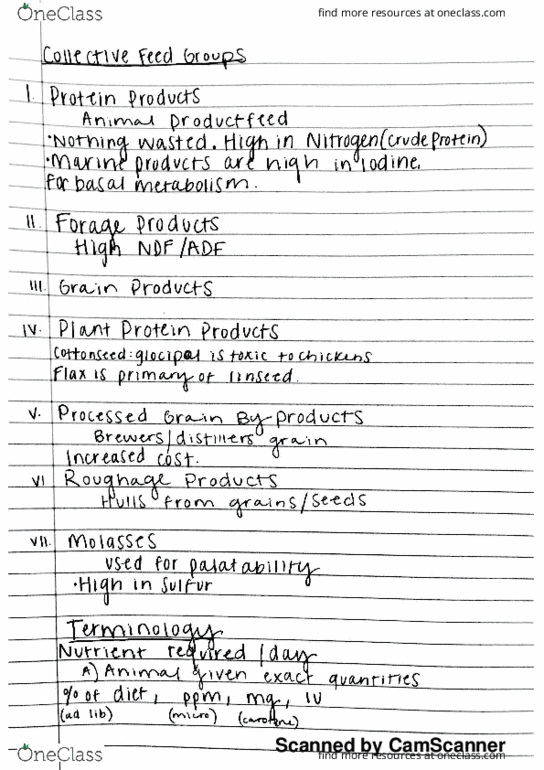 OneClass
find more resources at oneclass.com
Collective Feed Groups
I. Protein Products
Animal product feed
•Nothing wasted. High in Nitrogen (crude protein)
•Marine products are high in iodine.
for basal metabolism.
II. Forage Products
High NDF/ADF
III. Grain Products
IV. Plant Protein Products
Cottonseed: glocipal is toxic to chickens
Flax is primary of linseed.
V. Processed Grain By products
Brewers/distillers grain
Increased cost.
VI Roughage Products
Hulls from grains/seeds
VII. Molasses
used for palatability
•High in sulfur
Terminology
Nutrient required/day
A) Animal given exact quantities
% of diet, ppm, mg, IU
(ad lib) (micro) (carotene)
Scanned by CamScanner
OneClass
find more resources at oneclass.com